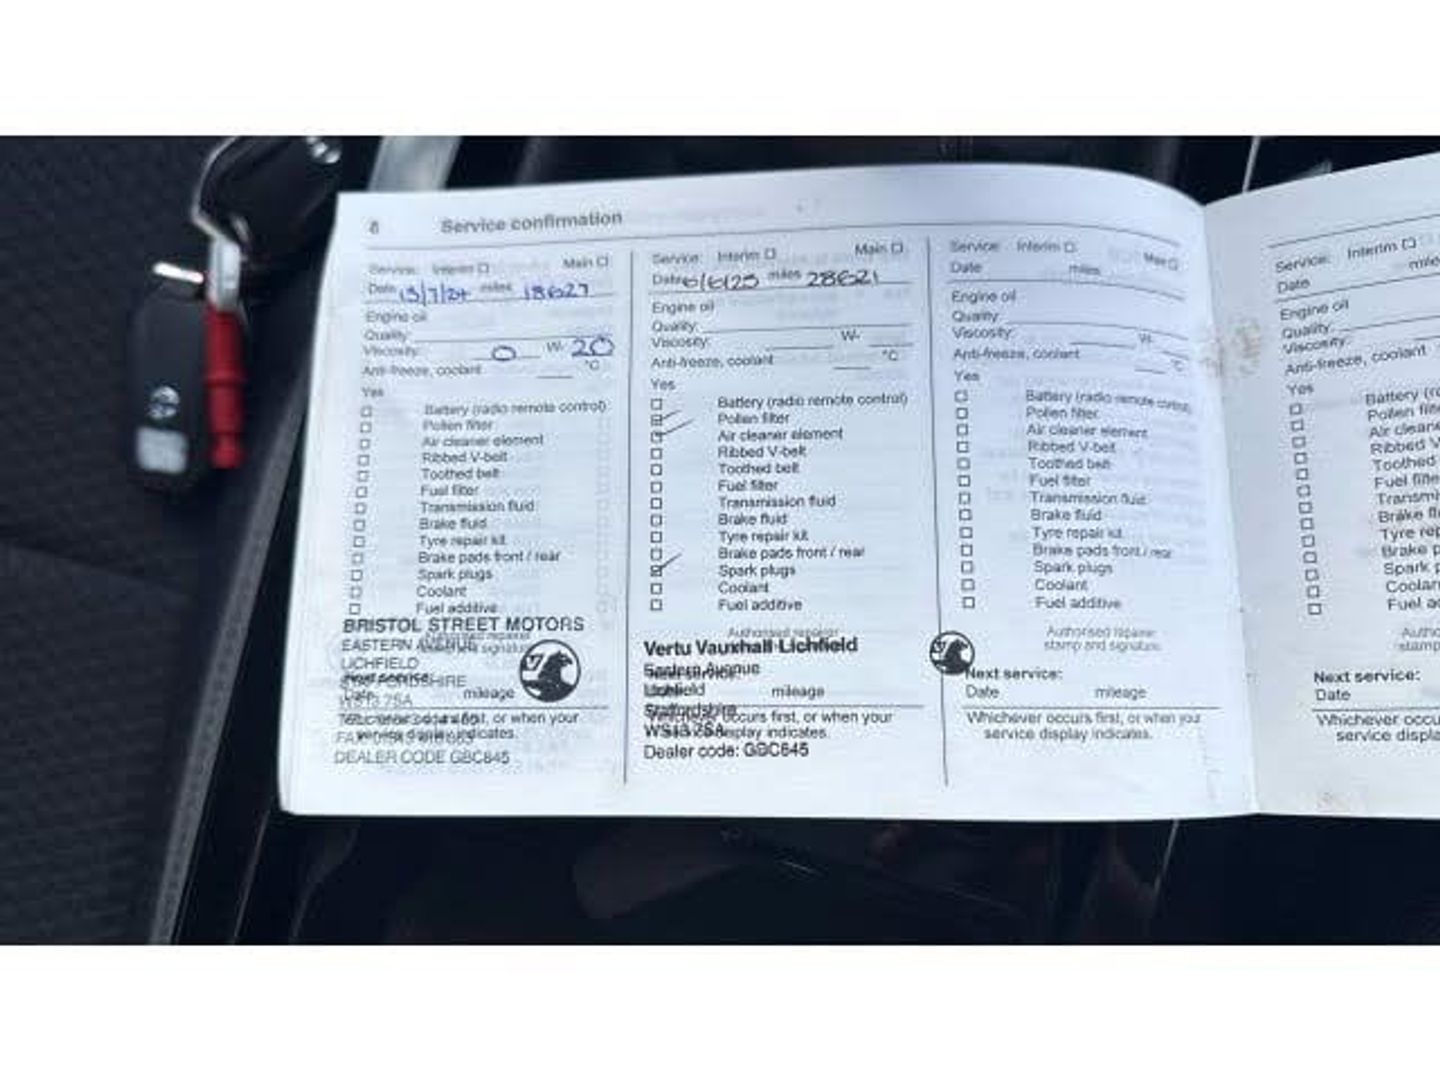 8 Service confirmation
Service: Interim Main
Date 15/7/24 miles 18627
Engine oil
Quality:
Viscosity: 0 W- 20
Anti-freeze, coolant °C
Yes
Battery (radio remote control)
Pollen filter
Air cleaner element
Ribbed V-belt
Toothed belt
Fuel filter
Transmission fluid
Brake fluid
Tyre repair kit
Brake pads front / rear
Spark plugs
Coolant
Fuel additive
BRISTOL STREET MOTORS
EASTERN AVENUE
LICHFIELD
WS13 7SA
Date mileage
or when your
service display indicates.
DEALER CODE GBC645
Service: Interim Main
Date 6/6/25 miles 28621
Engine oil
Quality:
Viscosity: W-
Anti-freeze, coolant °C
Yes
Battery (radio remote control)
Pollen filter
Air cleaner element
Ribbed V-belt
Toothed belt
Fuel filter
Transmission fluid
Brake fluid
Tyre repair kit
Brake pads front / rear
Spark plugs
Coolant
Fuel additive
Authorised repairer
Vertu Vauxhall Lichfield
Eastern Avenue
Lichfield mileage
Staffordshire
Whichever occurs first, or when your
WS13 7SA
service display indicates.
Dealer code: GBC645
Service: Interim Main
Date miles
Engine oil
Quality:
Viscosity: W-
Anti-freeze, coolant °C
Yes
Battery (radio remote control)
Pollen filter
Air cleaner element
Ribbed V-belt
Toothed belt
Fuel filter
Transmission fluid
Brake fluid
Tyre repair kit
Brake pads front / rear
Spark plugs
Coolant
Fuel additive
Authorised repairer
stamp and signature
Next service:
Date mileage
Whichever occurs first, or when you
service display indicates.
Service: Interim
Date
Engine oil
Quality:
Viscosity:
Anti-freeze, coolant
Yes
Battery (ra
Pollen filte
Air cleane
Ribbed V
Toothed
Fuel filte
Transmi
Brake fl
Tyre rep
Brake p
Spark p
Coolan
Fuel a
Autho
stamp
Next service:
Date
Whichever occu
service displa